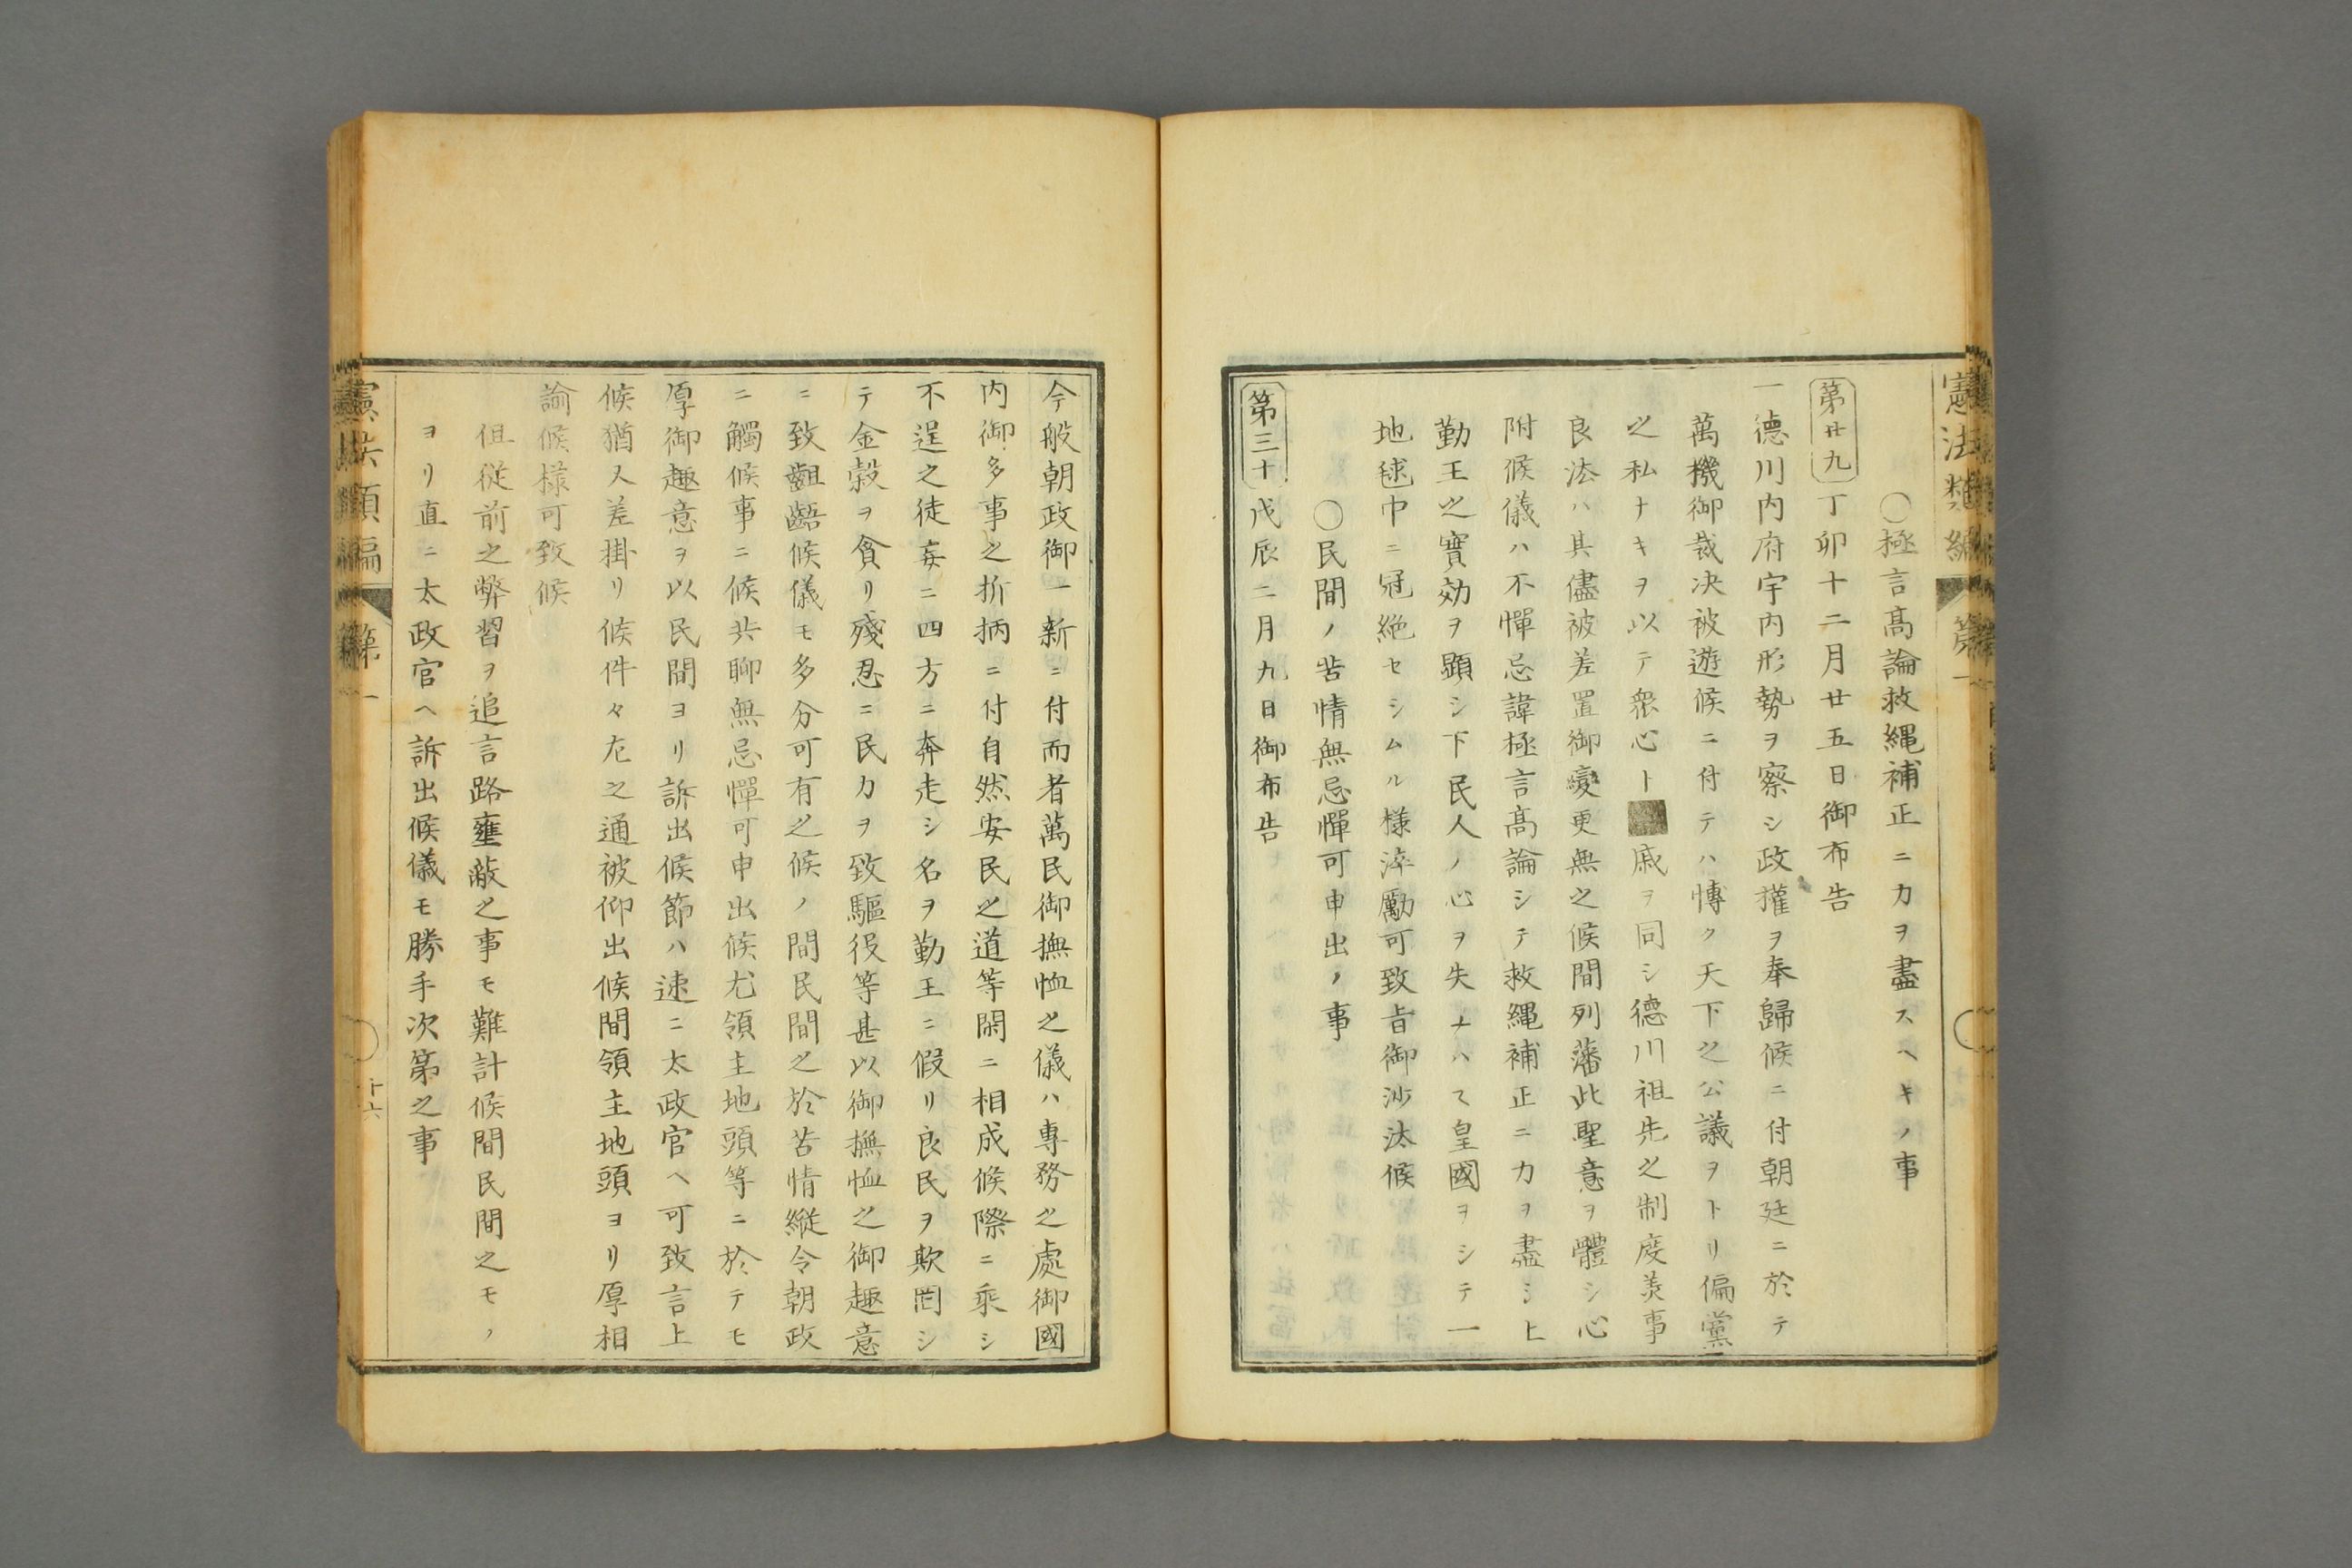 憲法類編
第一
〇極言髙論救縄補正ニ力ヲ盡スヘキノ事
第廿九 丁卯十二月廿五日御布告
一德川内府宇内形勢ヲ察シ政權ヲ奉歸候ニ付朝廷ニ於テ
萬機御裁决被遊候ニ付テハ博ク天下之公議ヲトリ偏黨
之私ナキヲ以テ衆心ト戚ヲ同シ德川祖先之制度美事
良法ハ其儘被差置御變更無之候間列藩此聖意ヲ體シ心
附候儀ハ不憚忌諱極言髙論シテ救縄補正ニ力ヲ盡シ上
勤王之實効ヲ顕シ下民人ノ心ヲ失ナハス皇國ヲシテ一
地毬中ニ冠絶セシムル様淬勵可致旨御沙汰候
〇民間ノ苦情無忌憚可申出ノ事
第三十 戊辰二月九日御布告
今般朝政御一新ニ付而者萬民御撫恤之儀ハ専務之處御國
内御多事之折柄ニ付自然安民之道等閑ニ相成候際ニ乘シ
不逞之徒妄ニ四方ニ奔走シ名ヲ勤王ニ假リ良民ヲ欺罔シ
テ金穀ヲ貪リ殘忍ニ民力ヲ致驅役等甚以御撫恤之御趣意
ニ致齟齬候儀モ多分可有之候ノ間民間之於苦情縱令朝政
ニ觸候事ニ候共聊無忌憚可申出候尤領主地頭等ニ於テモ
厚御趣意ヲ以民間ヨリ訴出候節ハ速ニ太政官ヘ可致言上
候猶又差掛リ候件々左之通被仰出候間領主地頭ヨリ厚相
諭候様可致候
但従前之弊習ヲ追言路壅蔽之事モ難計候間民間之モノ
ヨリ直ニ太政官ヘ訴出候儀モ勝手次第之事
憲法類編
第一
十六